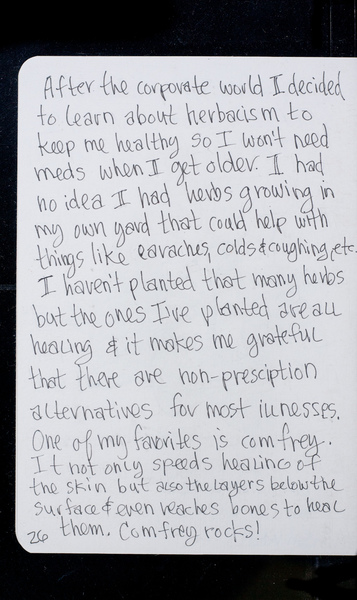 After the corporate world I decided
to learn about herbacism to
keep me healthy so I won't need
meds when I get older. I had
no idea I had herbs growing in
my own yard that could help with
things like earaches, colds & coughing, etc.
I haven't planted that many herbs
but the ones I've planted are all
healing & it makes me grateful
that there are non-presciption
alternatives for most illnesses.
One of my favorites is comfrey.
It not only speeds healing of
the skin but also the layers below the
surface & even reaches bones to heal
them. Comfrey rocks!
26